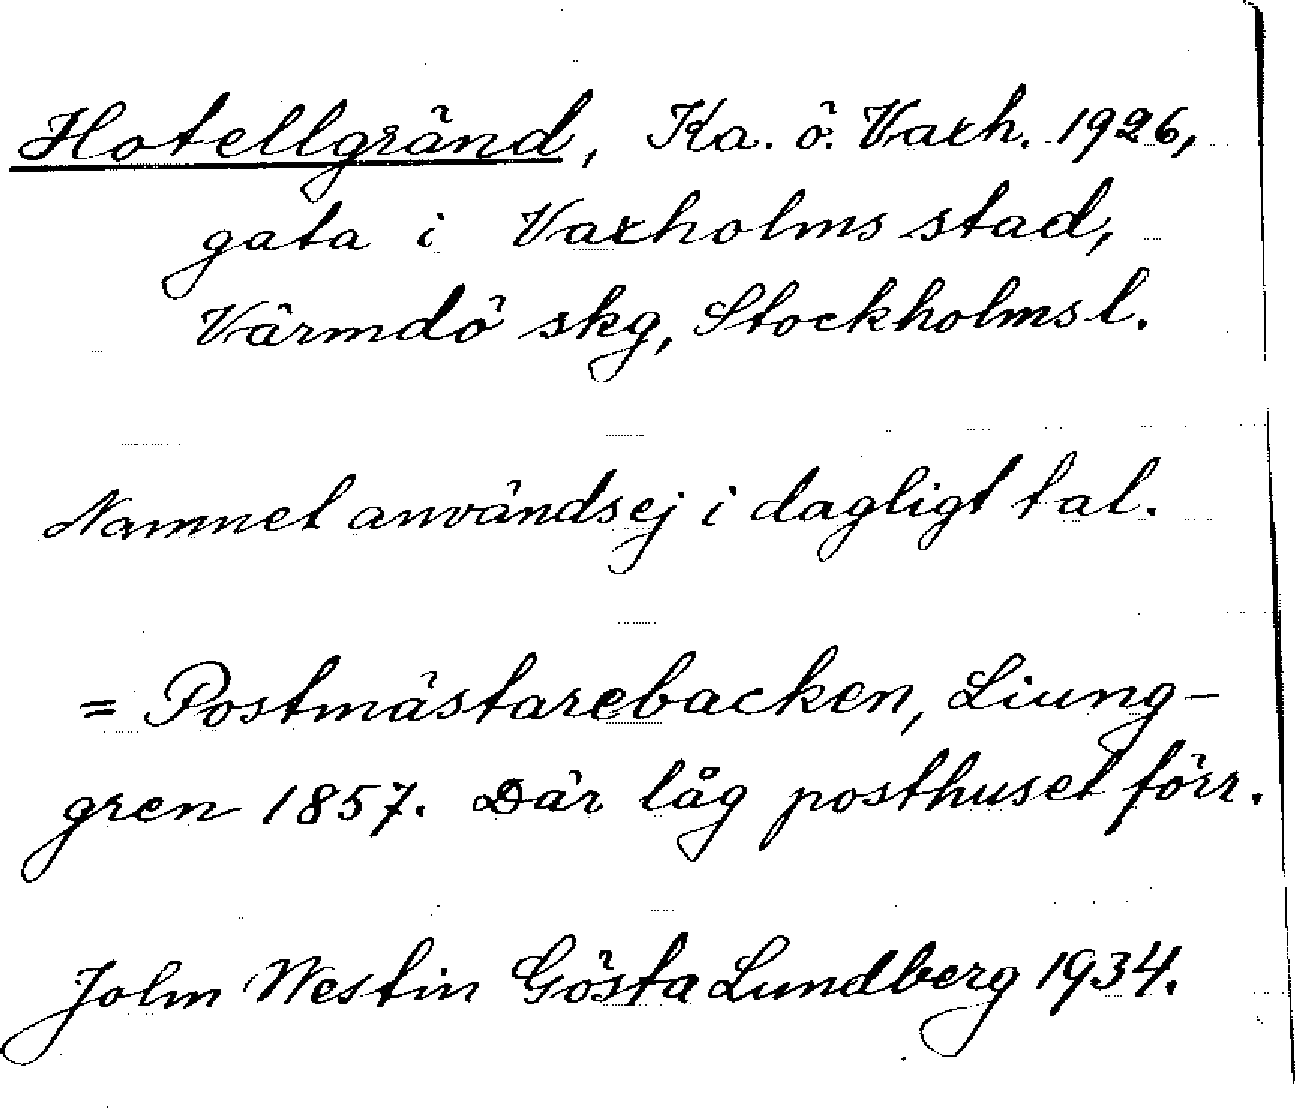 Hotellgränd, Ka. ö. Vaxh. 1926,
gata i Vaxholms stad,
Värmdö skg, Stockholms l.
Namnet användsej i dagligt tal.
= Postmästarebacken, Liung-
gren 1857. Där låg posthuset förr.
John Westin Gösta Lundberg 1934.